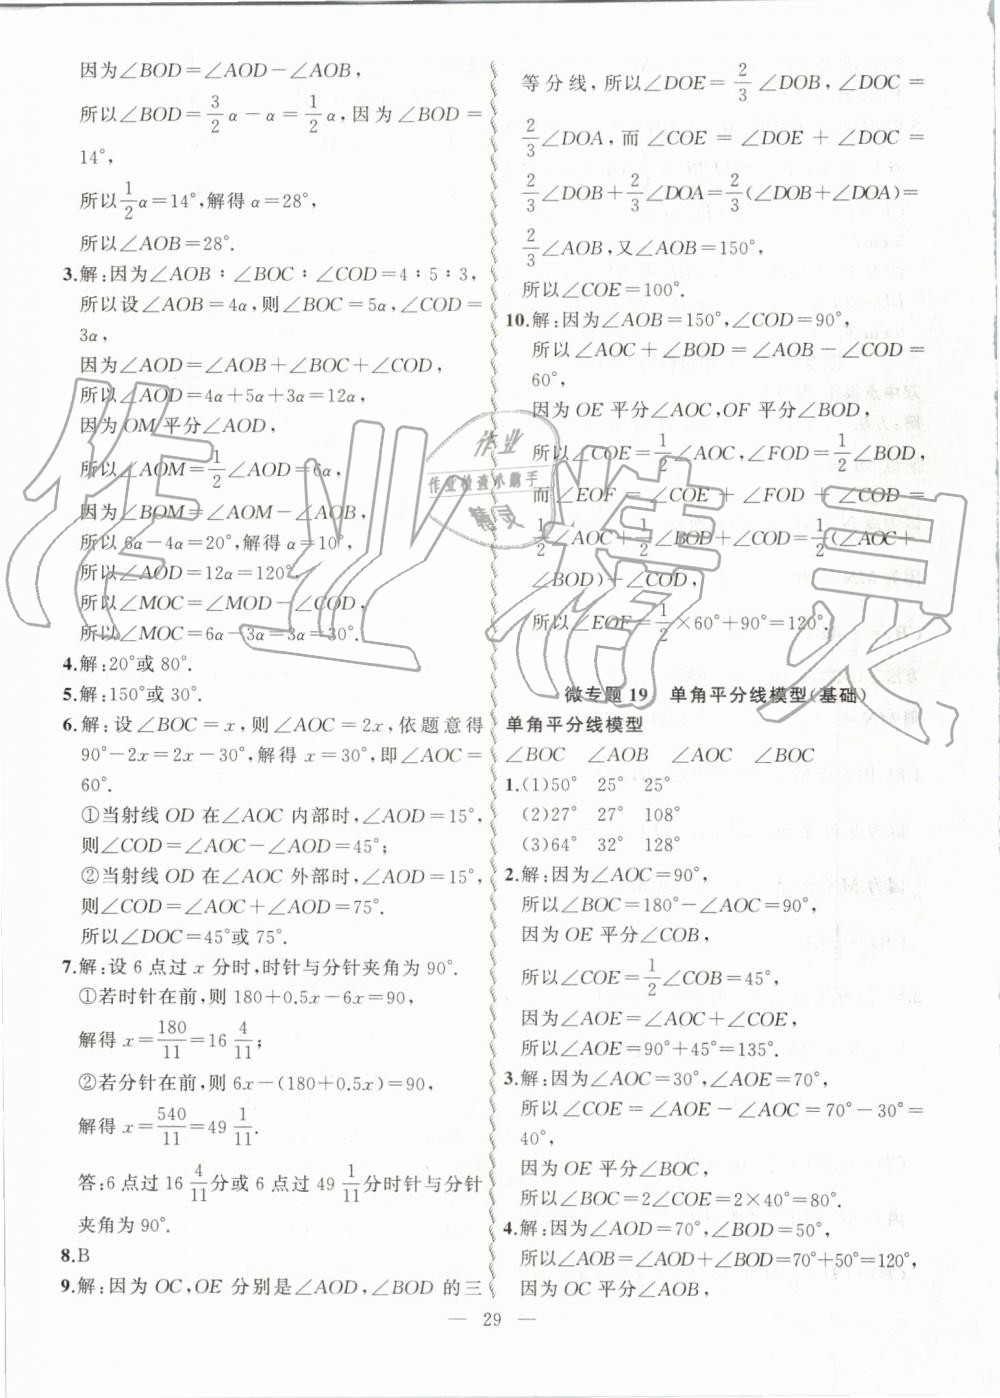 因为∠BOD=∠AOD-∠AOB,
所以∠BOD=3/2α-α=1/2α,因为∠BOD=
14°,
所以1/2α=14°,解得α=28°,
所以∠AOB=28°.
3.解:因为∠AOB∶∠BOC∶∠COD=4∶5∶3,
所以设∠AOB=4α,则∠BOC=5α,∠COD=
3α,
因为∠AOD=∠AOB+∠BOC+∠COD,
所以∠AOD=4α+5α+3α=12α,
因为OM平分∠AOD,
所以∠AOM=1/2∠AOD=6α,
因为∠BOM=∠AOM-∠AOB,
所以6α-4α=20°,解得α=10°,
所以∠AOD=12α=120°,
所以∠MOC=∠MOD-∠COD,
所以∠MOC=6α-3α=3α=30°.
4.解:20°或80°.
5.解:150°或30°.
6.解:设∠BOC=x,则∠AOC=2x,依题意得
90°-2x=2x-30°,解得x=30°,即∠AOC=
60°.
①当射线OD在∠AOC内部时,∠AOD=15°,
则∠COD=∠AOC-∠AOD=45°;
②当射线OD在∠AOC外部时,∠AOD=15°,
则∠COD=∠AOC+∠AOD=75°.
所以∠DOC=45°或75°.
7.解:设6点过x分时,时针与分针夹角为90°.
①若时针在前,则180+0.5x-6x=90,
解得x=180/11=16 4/11;
②若分针在前,则6x-(180+0.5x)=90,
解得x=540/11=49 1/11.
答:6点过16 4/11分或6点过49 1/11分时针与分针
夹角为90°.
8.B
9.解:因为OC,OE分别是∠AOD,∠BOD的三
等分线,所以∠DOE=2/3∠DOB,∠DOC=
2/3∠DOA,而∠COE=∠DOE+∠DOC=
2/3∠DOB+2/3∠DOA=2/3(∠DOB+∠DOA)=
2/3∠AOB,又∠AOB=150°,
所以∠COE=100°.
10.解:因为∠AOB=150°,∠COD=90°,
所以∠AOC+∠BOD=∠AOB-∠COD=
60°,
因为OE平分∠AOC,OF平分∠BOD,
所以∠COE=1/2∠AOC,∠FOD=1/2∠BOD,
而∠EOF=∠COE+∠FOD+∠COD=
1/2∠AOC+1/2∠BOD+∠COD=1/2(∠AOC+
∠BOD)+∠COD,
所以∠EOF=1/2×60°+90°=120°.
微专题19 单角平分线模型(基础)
单角平分线模型
∠BOC ∠AOB ∠AOC ∠BOC
1.(1)50° 25° 25°
(2)27° 27° 108°
(3)64° 32° 128°
2.解:因为∠AOC=90°,
所以∠BOC=180°-∠AOC=90°,
因为OE平分∠COB,
所以∠COE=1/2∠COB=45°,
因为∠AOE=∠AOC+∠COE,
所以∠AOE=90°+45°=135°.
3.解:因为∠AOC=30°,∠AOE=70°,
所以∠COE=∠AOE-∠AOC=70°-30°=
40°,
因为OE平分∠BOC,
所以∠BOC=2∠COE=2×40°=80°.
4.解:因为∠AOD=70°,∠BOD=50°,
所以∠AOB=∠AOD+∠BOD=70°+50°=120°,
因为OC平分∠AOB,
— 29 —
作业精灵
作业
作业检查小助手
精灵